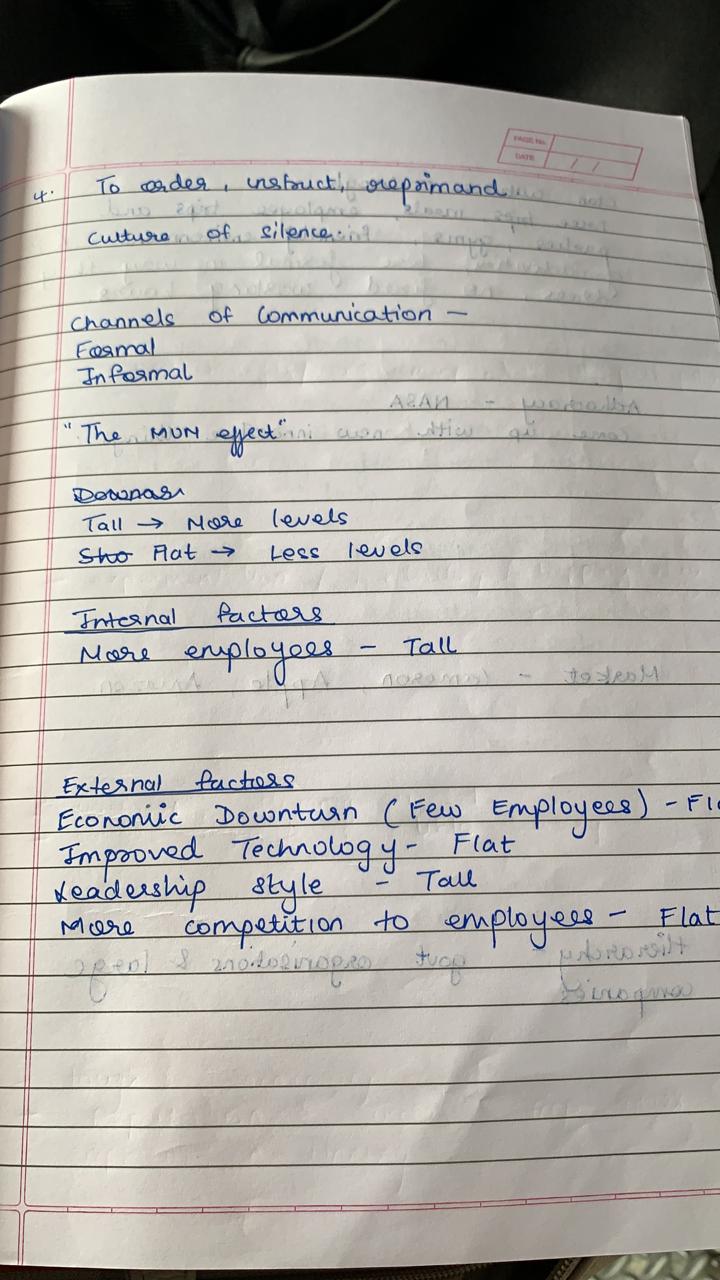 PAGE No.
DATE / /
4. To order, instruct, reprimand
Culture of silence.
Channels of Communication —
Formal
Informal
"The MUN effect"
Tall → More levels
Sho Flat → Less levels
Internal factors
More employees - Tall
External factors
Economic Downturn (Few Employees) -
Improved Technology - Flat
Leadership style - Tall
More competition to employees - Flat